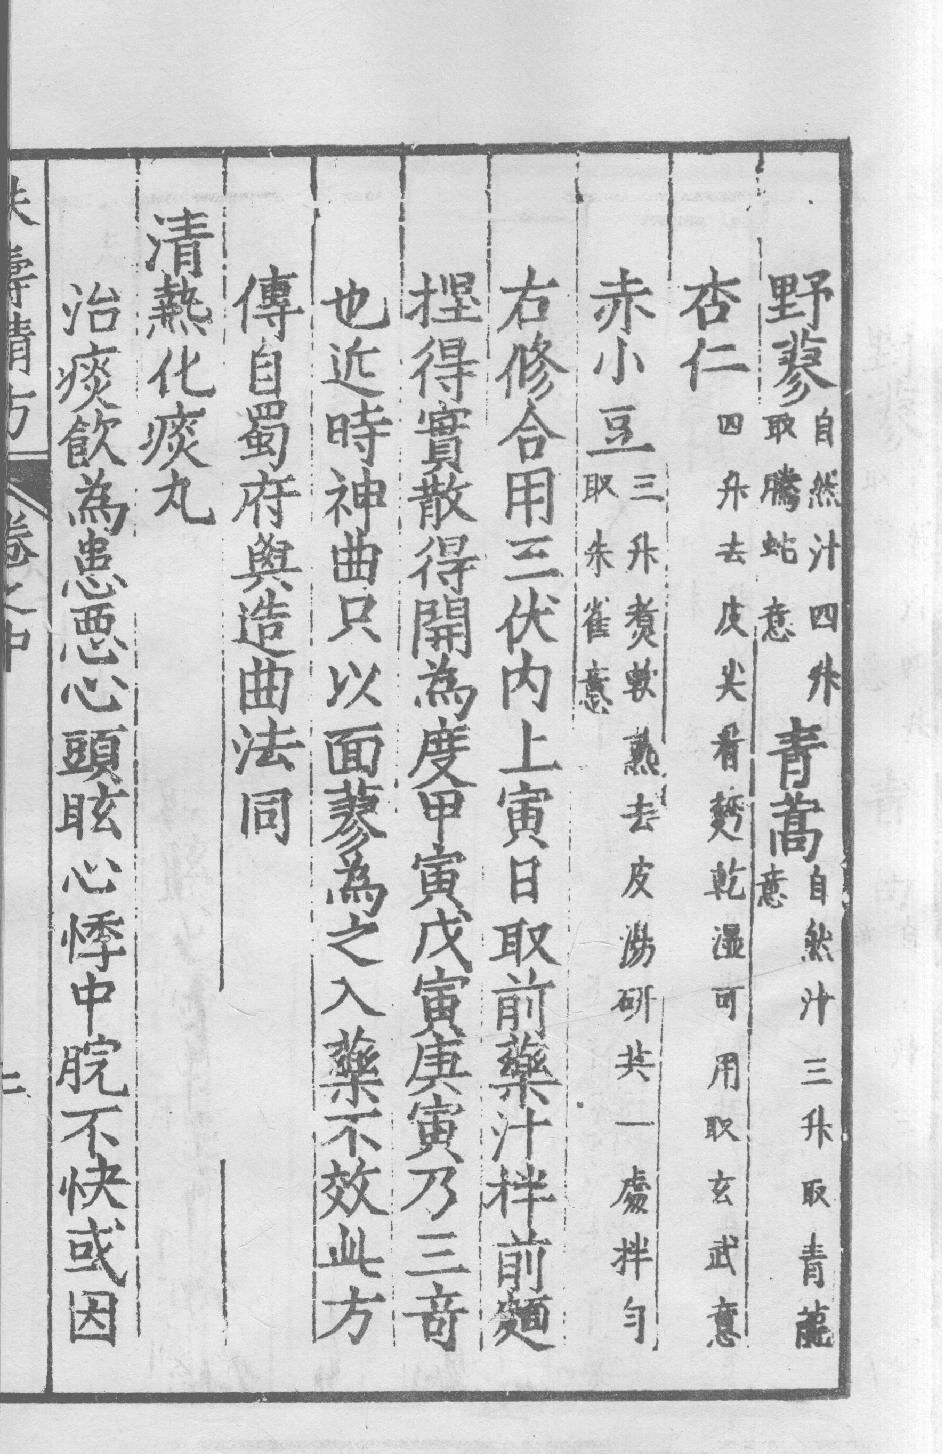 野蓼自然汁四升取騰蛇意青蒿自然汁三升取青龍意
杏仁四升去皮尖看麪乾濕可用取玄武意
赤小豆三升煑軟熟去皮湯研共一處拌勻取朱雀意
右修合用三伏内上寅日取前藥汁拌前麵
揑得實散得開為度甲寅戊寅庚寅乃三竒
也近時神曲只以面蓼為之入藥不效此方
傳自蜀府與造曲法同
清熱化痰丸
治痰飲為患惡心頭眩心悸中脘不快或因
精方 卷之中